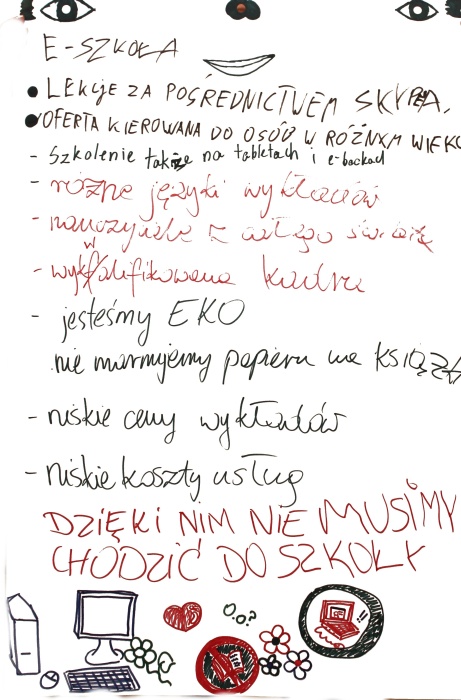 E-SZKOŁA
• LEKCJE ZA POŚREDNICTWEM SKYPE'A,
• OFERTA KIEROWANA DO OSÓB W RÓŻNYM WIEKU
- Szkolenie także na tabletach i e-bookach
- różne języki wykładów
- nauczyciele z całego świata
- wykwalifikowana kadra
- jesteśmy EKO
nie marnujemy papieru na KSIĄŻKI
- niskie ceny wykładów
- niskie koszty usług
DZIĘKI NIM NIE MUSIMY
CHODZIĆ DO SZKOŁY
O.O?
!!